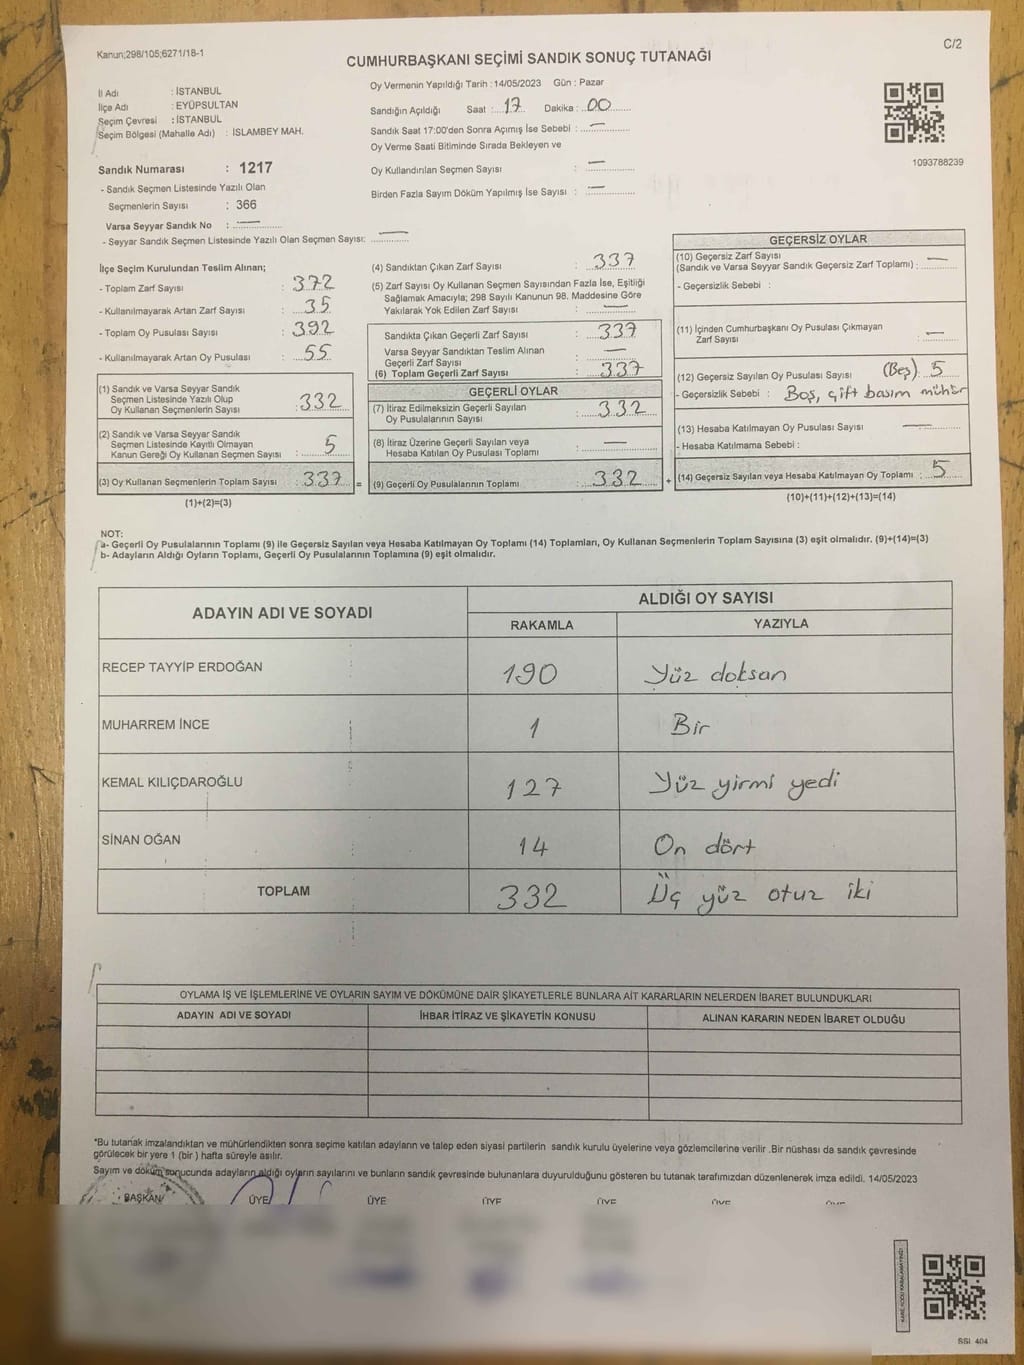 Kanun;298/105;6271/18-1
C/2
CUMHURBAŞKANI SEÇİMİ SANDIK SONUÇ TUTANAĞI
İl Adı : İSTANBUL
İlçe Adı : EYÜPSULTAN
Seçim Çevresi : İSTANBUL
Seçim Bölgesi (Mahalle Adı) : İSLAMBEY MAH.
Oy Vermenin Yapıldığı Tarih : 14/05/2023 Gün : Pazar
Sandığın Açıldığı Saat : 17 Dakika : 00
Sandık Saat 17:00'den Sonra Açımış İse Sebebi : —
Oy Verme Saati Bitiminde Sırada Bekleyen ve
Oy Kullandırılan Seçmen Sayısı : —
Birden Fazla Sayım Döküm Yapılmış İse Sayısı : —
1093788239
Sandık Numarası : 1217
- Sandık Seçmen Listesinde Yazılı Olan
Seçmenlerin Sayısı : 366
Varsa Seyyar Sandık No : —
- Seyyar Sandık Seçmen Listesinde Yazılı Olan Seçmen Sayısı: —
İlçe Seçim Kurulundan Teslim Alınan;
- Toplam Zarf Sayısı : 372
- Kullanılmayarak Artan Zarf Sayısı : 35
- Toplam Oy Pusulası Sayısı : 392
- Kullanılmayarak Artan Oy Pusulası : 55
(1) Sandık ve Varsa Seyyar Sandık
Seçmen Listesinde Yazılı Olup
Oy Kullanan Seçmenlerin Sayısı : 332
(2) Sandık ve Varsa Seyyar Sandık
Seçmen Listesinde Kayıtlı Olmayan
Kanun Gereği Oy Kullanan Seçmen Sayısı : 5
(3) Oy Kullanan Seçmenlerin Toplam Sayısı : 337 =
(1)+(2)=(3)
(4) Sandıktan Çıkan Zarf Sayısı : 337
(5) Zarf Sayısı Oy Kullanan Seçmen Sayısından Fazla İse, Eşitliği
Sağlamak Amacıyla; 298 Sayılı Kanunun 98. Maddesine Göre
Yakılarak Yok Edilen Zarf Sayısı : —
Sandıkta Çıkan Geçerli Zarf Sayısı : 337
Varsa Seyyar Sandıktan Teslim Alınan
Geçerli Zarf Sayısı : —
(6) Toplam Geçerli Zarf Sayısı : 337
GEÇERLİ OYLAR
(7) İtiraz Edilmeksizin Geçerli Sayılan
Oy Pusulalarının Sayısı : 332
(8) İtiraz Üzerine Geçerli Sayılan veya
Hesaba Katılan Oy Pusulası Toplamı : —
(9) Geçerli Oy Pusulalarının Toplamı : 332 +
GEÇERSİZ OYLAR
(10) Geçersiz Zarf Sayısı
(Sandık ve Varsa Seyyar Sandık Geçersiz Zarf Toplamı) : —
- Geçersizlik Sebebi :
(11) İçinden Cumhurbaşkanı Oy Pusulası Çıkmayan
Zarf Sayısı : —
(12) Geçersiz Sayılan Oy Pusulası Sayısı : (Beş) 5
- Geçersizlik Sebebi : Boş, çift basım mühür
(13) Hesaba Katılmayan Oy Pusulası Sayısı : —
- Hesaba Katılmama Sebebi :
(14) Geçersiz Sayılan veya Hesaba Katılmayan Oy Toplamı : 5
(10)+(11)+(12)+(13)=(14)
NOT:
a- Geçerli Oy Pusulalarının Toplamı (9) ile Geçersiz Sayılan veya Hesaba Katılmayan Oy Toplamı (14) Toplamları, Oy Kullanan Seçmenlerin Toplam Sayısına (3) eşit olmalıdır. (9)+(14)=(3)
b- Adayların Aldığı Oyların Toplamı, Geçerli Oy Pusulalarının Toplamına (9) eşit olmalıdır.
ADAYIN ADI VE SOYADI ALDIĞI OY SAYISI
RAKAMLA YAZIYLA
RECEP TAYYİP ERDOĞAN 190 Yüz doksan
MUHARREM İNCE 1 Bir
KEMAL KILIÇDAROĞLU 127 Yüz yirmi yedi
SİNAN OĞAN 14 On dört
TOPLAM 332 Üç yüz otuz iki
OYLAMA İŞ VE İŞLEMLERİNE VE OYLARIN SAYIM VE DÖKÜMÜNE DAİR ŞİKAYETLERLE BUNLARA AİT KARARLARIN NELERDEN İBARET BULUNDUKLARI
ADAYIN ADI VE SOYADI İHBAR İTİRAZ VE ŞİKAYETİN KONUSU ALINAN KARARIN NEDEN İBARET OLDUĞU
*Bu tutanak imzalandıktan ve mühürlendikten sonra seçime katılan adayların ve talep eden siyasi partilerin sandık kurulu üyelerine veya gözlemcilerine verilir .Bir nüshası da sandık çevresinde
görülecek bir yere 1 (bir ) hafta süreyle asılır.
Sayım ve döküm sonucunda adayların aldığı oyların sayılarını ve bunların sandık çevresinde bulunanlara duyurulduğunu gösteren bu tutanak tarafımızdan düzenlenerek imza edildi. 14/05/2023
BAŞKAN ÜYE ÜYE ÜYE ÜYE ÜYE
SSI 404